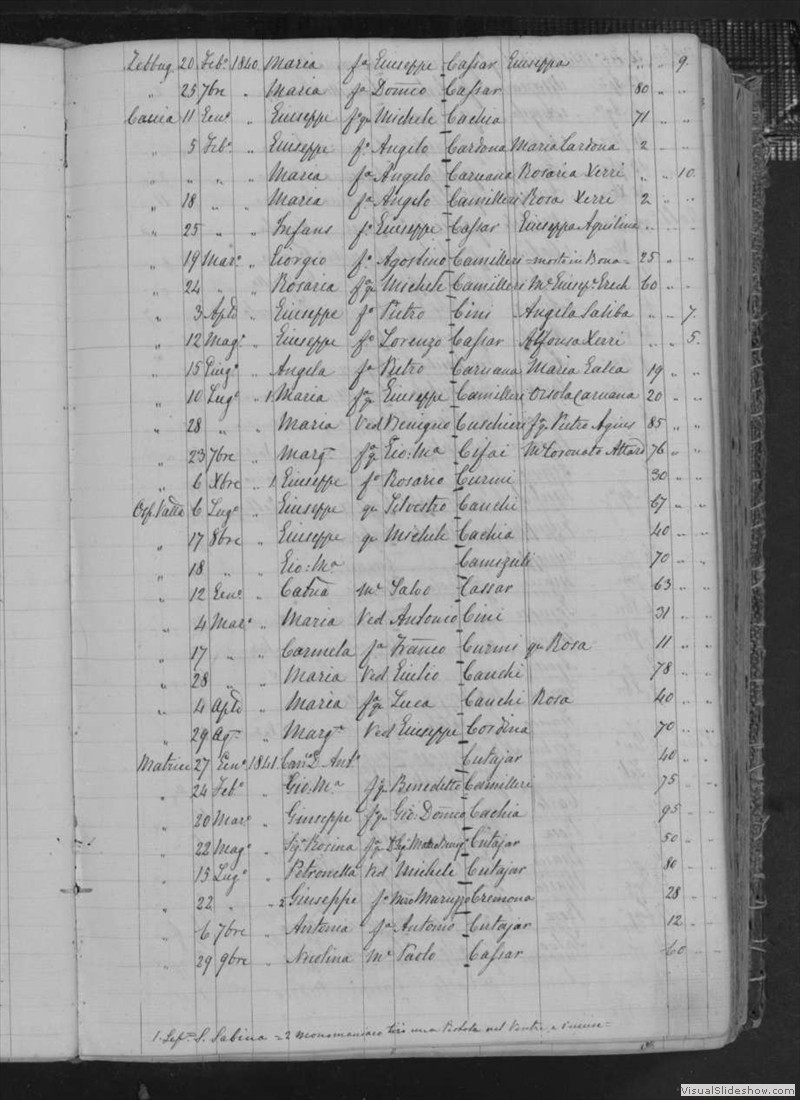 Zebbug 20 Feb.o 1840. 1 Maria fa Giuseppe Cassar Giuseppa " " 9.
" 25 7bre " Maria fa Dom.co Cassar 80 " "
Caccia 11 Gen.o " Giuseppe fo qu Michele Cachia 71 " "
" 5 Feb.o " Giuseppe fo Angelo Cardona Maria Cardona 2 " "
" " " " Maria fa Angelo Caruana Rosaria Xerri " " 10.
" 18 " " Maria fa Angelo Camilleri Rosa Xerri 2 " "
" 25 " " Infans fo Giuseppe Cassar Giuseppa Agustina " " "
" 19 Mar.o " Giorgio fo Agostino Camilleri = morto in Bona = 25 " "
" 24 " " Rosaria fa qu Michele Camilleri Me Giusep.e 60 " "
" 3 Aple " Giuseppe fo Pietro Cini Angela Saliba " " 7.
" 12 Mag.o " Giuseppe fo Lorenzo Cassar Alfonsa Xerri " " 5.
" 15 Giug.o " Angela fa Pietro Caruana Maria Galea 19 " "
" 10 Lug.o " 1 Maria fa qu Giuseppe Camilleri Orsola Caruana 20 " "
" 28 " " Maria Ved Benigno Cuschieri fa qu Pietro Agius 85 " "
" 23 7bre " Marg.ta fa qu Gio: Ma Cifai Me Coronato Attard 76 " "
" 6 Xbre " 1 Giuseppe fo Rosario Curmi 30 " "
Osp. Valta 6 Lug.o " Giuseppe qu Silvestro Cauchi 67 " "
" 17 8bre " Giuseppe qu Michele Cachia 40 " "
" 18 " " Gio: Ma 70 " "
" 12 Gen.o " Catna Me Salvo Cassar 63 " "
" 4 Mar.o " Maria Ved Antonio Cini 31 " "
" 17 " " Carmela fa Franco Curmi qu Rosa 11 " "
" 28 " " Maria Ved Giulio Cauchi 78 " "
" 4 Aple " Maria fa qu Luca Cauchi Rosa 40 " "
" 29 Ag.to " Marg.ta Ved Giuseppe Cordina 70 " "
Matrice 27 Gen.o 1841. Can.co D. Ant.o Cutajar 40 " "
" 24 Feb.o " Gio: Ma fo qu Benedetto Camilleri 75 " "
" 20 Mar.o " Giuseppe fo qu Gio: Dom.co Cachia 95 " "
" 22 Mag.o " Sig.a Rosina fa qu Cutajar 50 " "
" 15 Lug.o " Petronella Ved Michele Cutajar 80 " "
" 22 " " 2 Giuseppe fo Cremona 28 " "
" 6 7bre " Antonia fa Antonio Cutajar 12 " "
" 29 9bre " Me Paolo Cassar 60 " "
1. Sep.= S. Sabina = 2 monomaniaco tirò una Pistola nel Ventre, e
VisualSlideshow.com